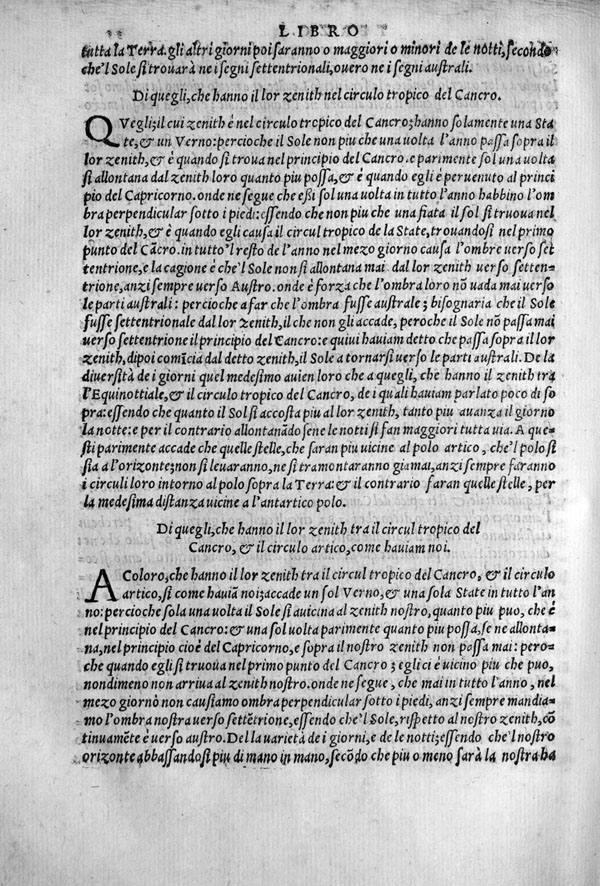 LIBRO
tutta la Terra. gli altri giorni poi saranno o maggiori o minori de le notti, secondo
che'l Sole si trouarà ne i segni settentrionali, ouero ne i segni australi.
Di quegli, che hanno il lor zenith nel circulo tropico del Cancro.
QVegli; il cui zenith è nel circulo tropico del Cancro; hanno solamente una Sta
te, & un Verno: percioche il Sole non piu che una uolta l'anno passa sopra il
lor zenith, & è quando si troua nel principio del Cancro. e parimente sol una uolta
si allontana dal zenith loro quanto piu possa, & è quando egli è peruenuto al princi
pio del Capricorno. onde ne segue che essi sol una uolta in tutto l'anno habbino l'om
bra perpendicular sotto i piedi: essendo che non piu che una fiata il sol si truoua nel
lor zenith, & è quando egli causa il circul tropico de la State, trouandosi nel primo
punto del Cãcro. in tutto'l resto de l'anno nel mezo giorno causa l'ombre uerso set
tentrione, e la cagione è che'l Sole non si allontana mai dal lor zenith uerso setten-
trione, anzi sempre uerso Austro. onde è forza che l'ombra loro nõ uada mai uerso
le parti australi: percioche a far che l'ombra fusse australe; bisognaria che il Sole
fusse settentrionale dal lor zenith, il che non gli accade, peroche il Sole nõ passa mai
uerso settentrione il principio del Cancro: e quiui hauiam detto che passa sopra il lor
zenith, dipoi comĩcia dal detto zenith, il Sole a tornarsi uerso le parti australi. De la
diuersità de i giorni quel medesimo auien loro che a quegli, che hanno il zenith tra
l'Equinottiale, & il circulo tropico del Cancro, de i quali hauiam parlato poco di so
pra: essendo che quanto il Sol si accosta piu al lor zenith, tanto piu auanza il giorno
la notte: e per il contrario allontanãdosene le notti si fan maggiori tutta uia. A que
sti parimente accade che quelle stelle, che saran piu uicine al polo artico, che'l polo si
sia a l'orizonte; non si leuaranno, ne si tramontaranno giamai, anzi sempre faranno
i circuli loro intorno al polo sopra la Terra: & il contrario faran quelle stelle, per
la medesima distanza uicine a l'antartico polo.
Di quegli, che hanno il lor zenith tra il circul tropico del
Cancro, & il circulo artico, come hauiam noi.
A Coloro, che hanno il lor zenith tra il circul tropico del Cancro, & il circulo
artico, si come hauiã noi; accade un sol Verno, & una sola State in tutto l'an
no: percioche sola una uolta il Sole si auicina al zenith nostro, quanto piu puo, che è
nel principio del Cancro: & una sol uolta parimente quanto piu possa, se ne allonta
na, nel principio cioè del Capricorno, e sopra il nostro zenith non passa mai: pero-
che quando egli si truoua nel primo punto del Cancro; egli ci è uicino piu che puo,
nondimeno non arriua al zenith nostro. onde ne segue, che mai in tutto l'anno, nel
mezo giorno non causiamo ombra perpendicular sotto i piedi, anzi sempre mandia-
mo l'ombra nostra uerso settẽtrione, essendo che'l Sole, rispetto al nostro zenith, cõ
tinuamẽte è uerso austro. Della varietà de i giorni, e de le notti; essendo che'l nostro
orizonte abbassandosi piu di mano in mano, secõdo che piu o meno sarà la nostra ha